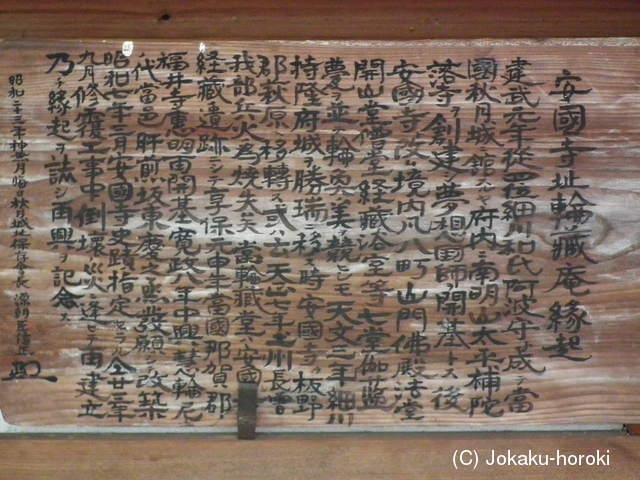 安國寺址輪蔵庵縁起
建武元年従四位細川和氏阿波守成テ当
國秋月城ニ舘スルヤ府内ニ南明山太平補陀
落寺ヲ創建ス夢想國師ヲ開基トス後
安國寺ト改ム境内凡八町山門佛殿法堂
開山堂僧堂経蔵浴室等七堂伽藍
甍ヲ並ヘ輪奐美ヲ競ヒシモ天文二年細川
持隆府城ヲ勝瑞ニ移ス時安國寺ヲ板野
郡秋原ニ移転ス
天正七年土川長曽
我部兵火ノ為焼失ス当輪蔵堂ハ安國寺
経蔵ノ遺跡ニシテ享保二申年當國那賀郡
福井寺恵明再開基寛政八年中興ス慧輪尼
代當邑肝煎坂東慶之亟発願シテ改築
昭和七年三月安國寺史蹟指定セラル仝廿三年
九月修覆工事中倒壊ノ災ニ逢ヒテ再建立
乃縁起ヲ誌シ再興ヲ記念ス
昭和二十三年神無月晦秋月城址保存会長
(C) Jokaku-horoki